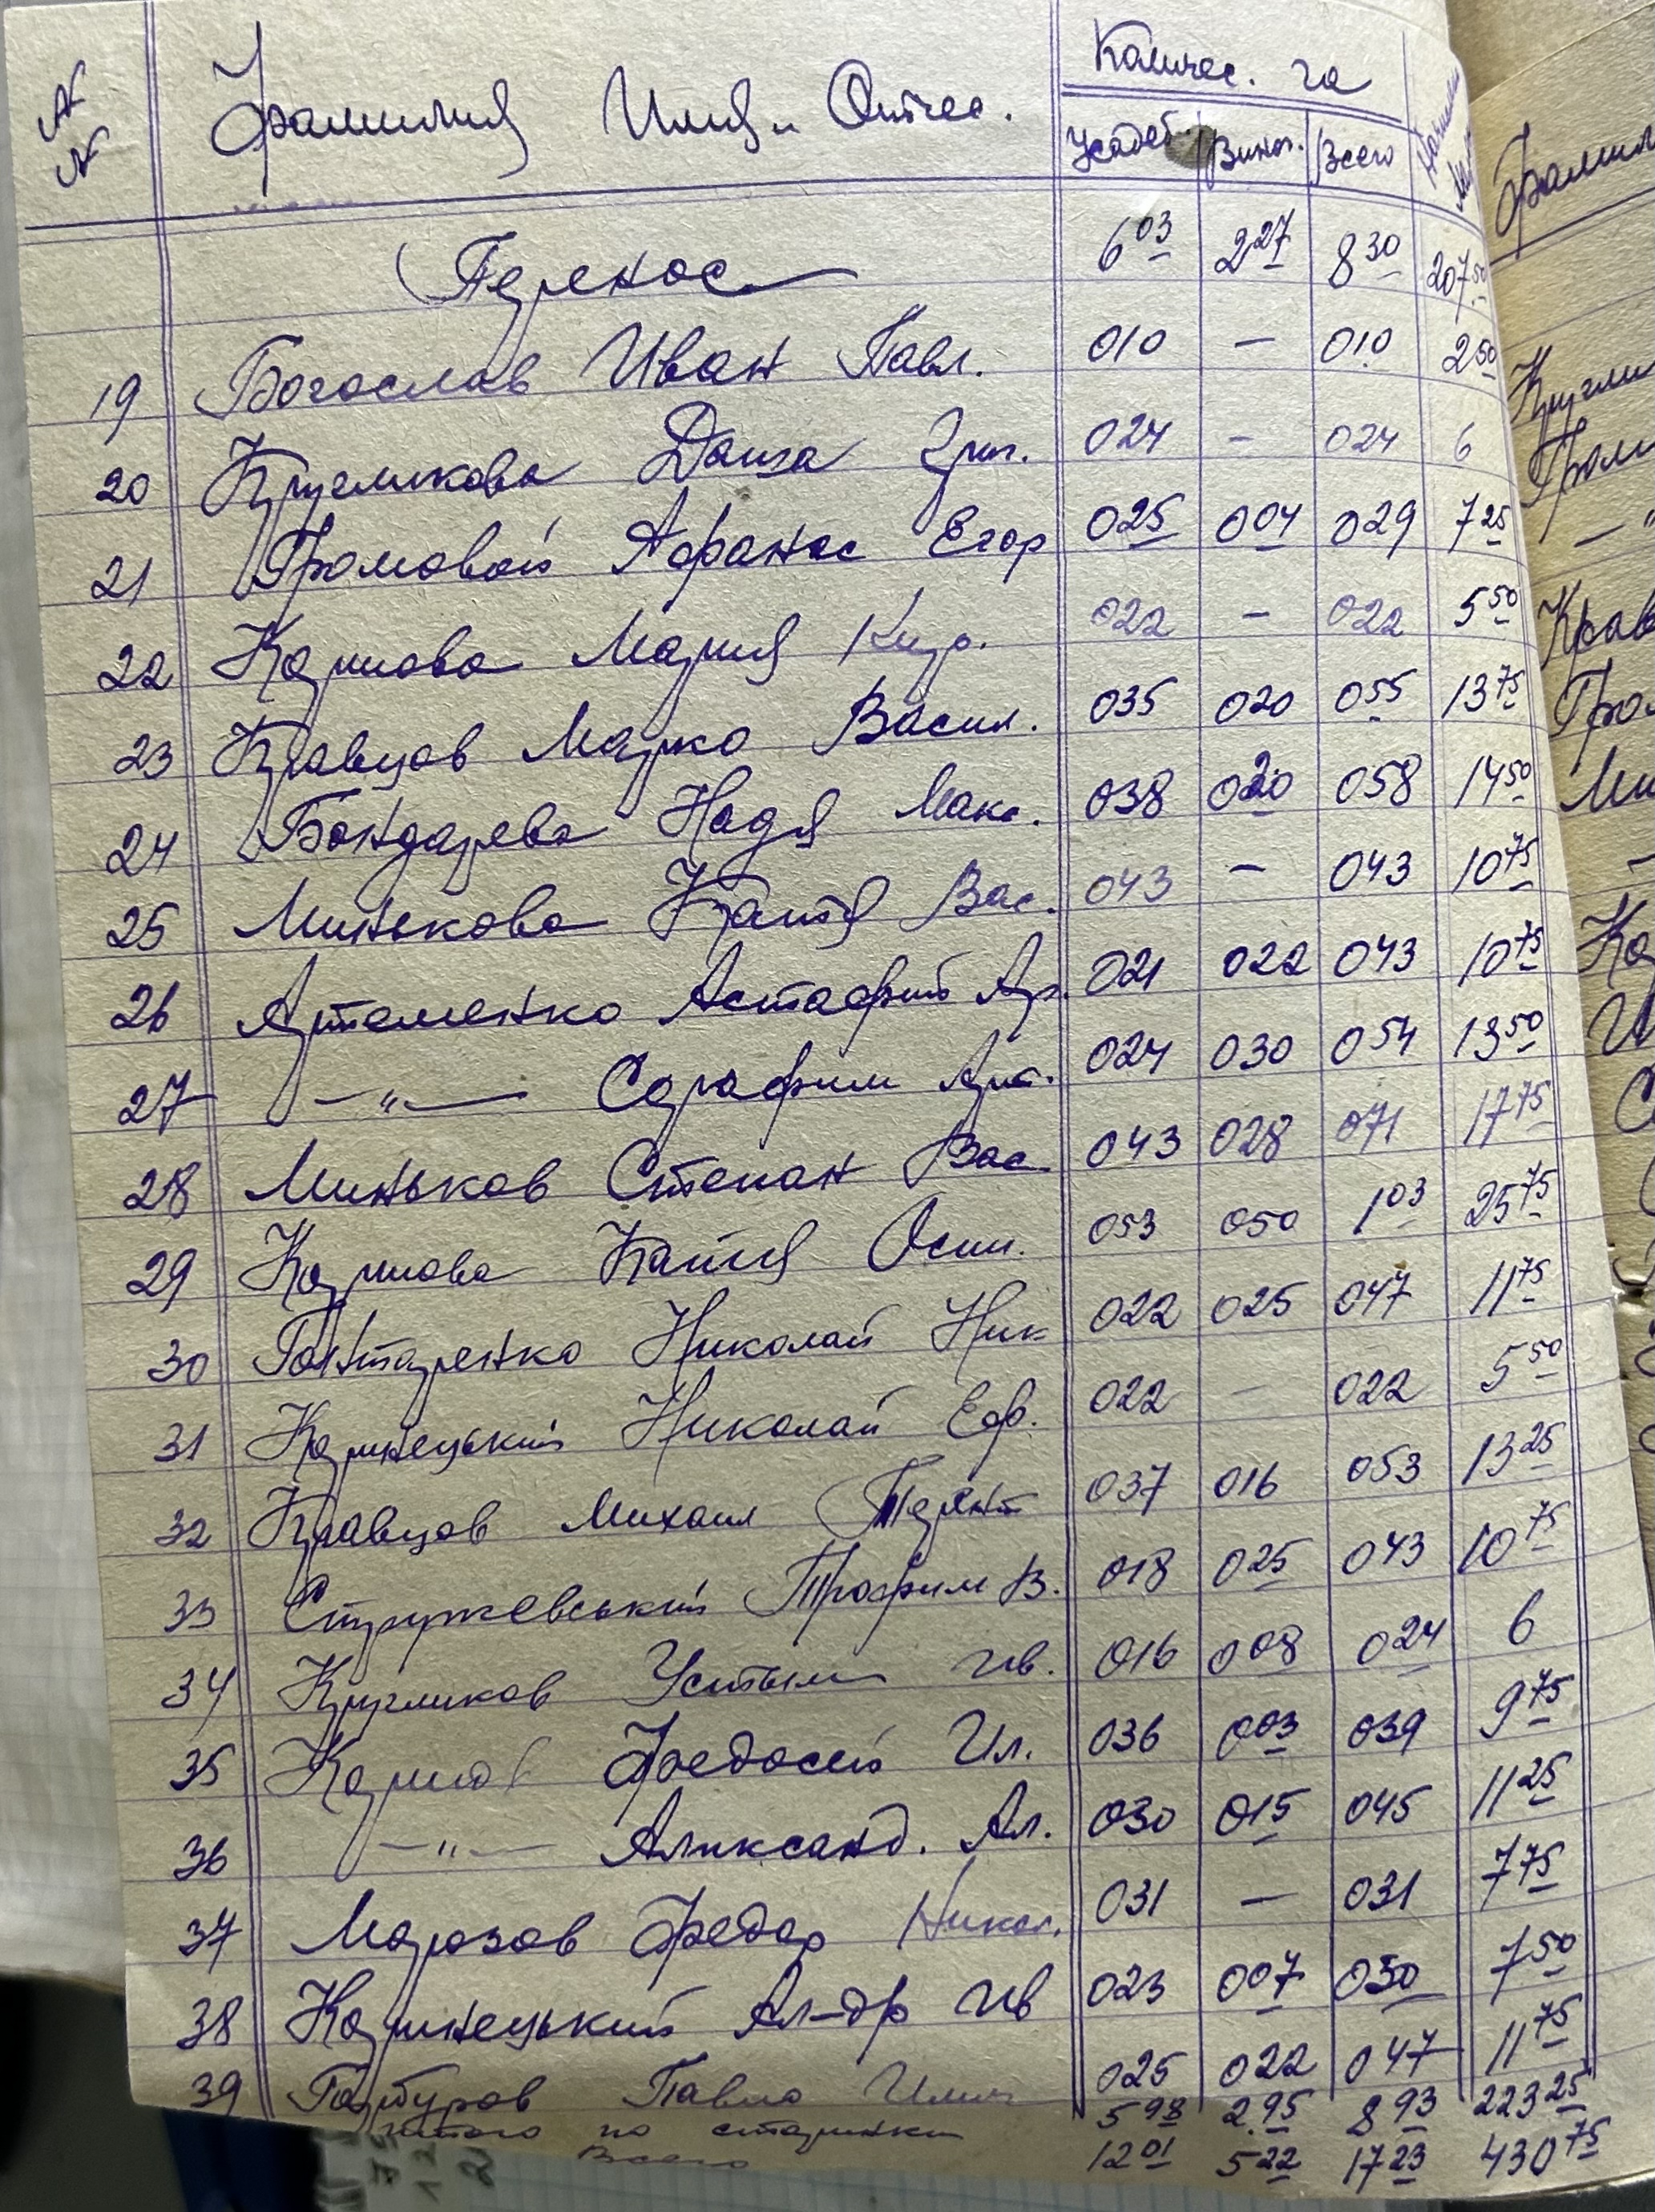 № №
Фамилия Имя и Отчес.
Количес. га
Усадеб. Виног. Всего
Перенос 6 03 2 27 8 30 207.50
19 Богослов Иван Павл. 010 — 010 2 50
20 Кругликова Даша Григ. 024 — 024 6
21 Громовой Афанас Егор 025 004 029 7 25
22 Карпова Мария Кир. 022 — 022 5 50
23 Кравцов Марко Васил. 035 020 055 13 75
24 Бондарева Надя Макс. 038 020 058 14 50
25 Минькова Катя Вас. 043 — 043 10 75
26 Артеменко Астафий Ар. 021 022 043 10 75
27 — " — Сарафим Арт. 024 030 054 13 50
28 Миньков Степан Вас 043 028 071 17 75
29 Карпова Катя Осип. 053 050 1 03 25 75
30 Гонтаренко Николай Ник 022 025 047 11 75
31 Коринецький Николай Еф. 022 — 022 5 50
32 Кравцов Михаил Терент 037 016 053 13 25
33 Стружевський Трофим В. 018 025 043 10 75
34 Кругликов Устым Ив. 016 008 024 6
35 Карпов Федосей Ил. 036 003 039 9 75
36 — " — Алиександ. Ал. 030 015 045 11 25
37 Морозов Федор Никол. 031 — 031 7 75
38 Коринецький Ал-др Ив 023 007 030 7 50
39 Павло Илич 025 022 047 11 75
итого по старинки 5 98 2.95 8 93 223 25
Всего 12 01 5 22 17 23 430 75
Фамил
Кругли
Гром
— "
Крав
Гром
Ми